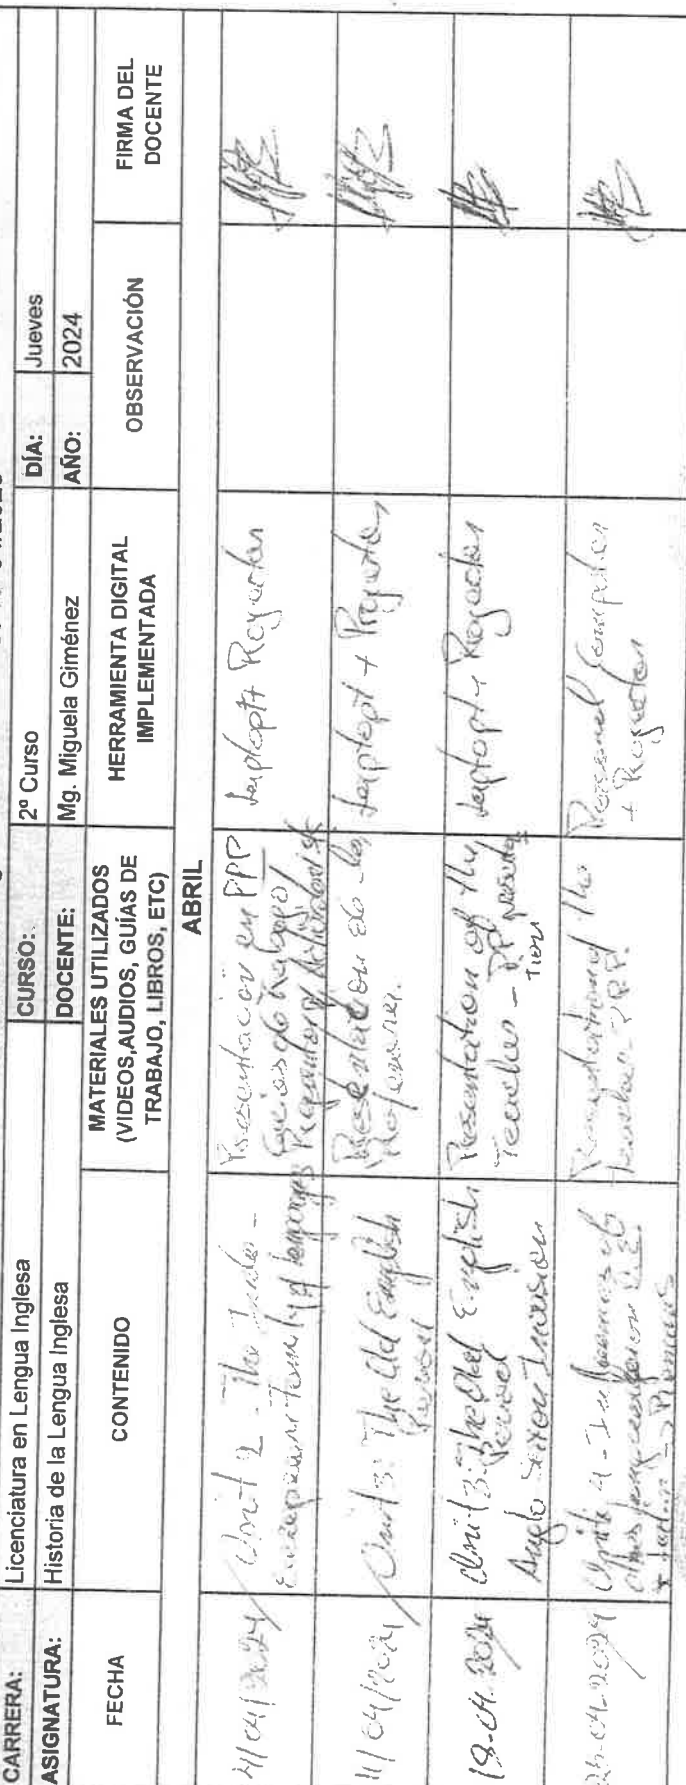 CARRERA: Licenciatura en Lengua Inglesa CURSO: 2º Curso DÍA: Jueves
ASIGNATURA: Historia de la Lengua Inglesa DOCENTE: Mg. Miguela Giménez AÑO: 2024
FECHA
CONTENIDO
MATERIALES UTILIZADOS
(VIDEOS,AUDIOS, GUÍAS DE
TRABAJO, LIBROS, ETC)
HERRAMIENTA DIGITAL
IMPLEMENTADA
OBSERVACIÓN
FIRMA DEL
DOCENTE
ABRIL
4/04/2024
Unit 2 - The Indo-
European Family of languages
Presentación en PPP
Guías de trabajo
Laptopt Proyector
11/04/2024
Unit 3: The Old English
Period
Presentation de la
Profesora.
Laptopt + Proyector
18-04-2024
Unit 3: The Old English
Period
Anglo Saxon Invasion
Presentation of the
Teacher - PP presenta
tion
Laptopt y Proyector
25-04-2024
Unit 4 - Influences of
other
Presentation of the
Teacher - PPP.
Personal Computer
+ Proyector